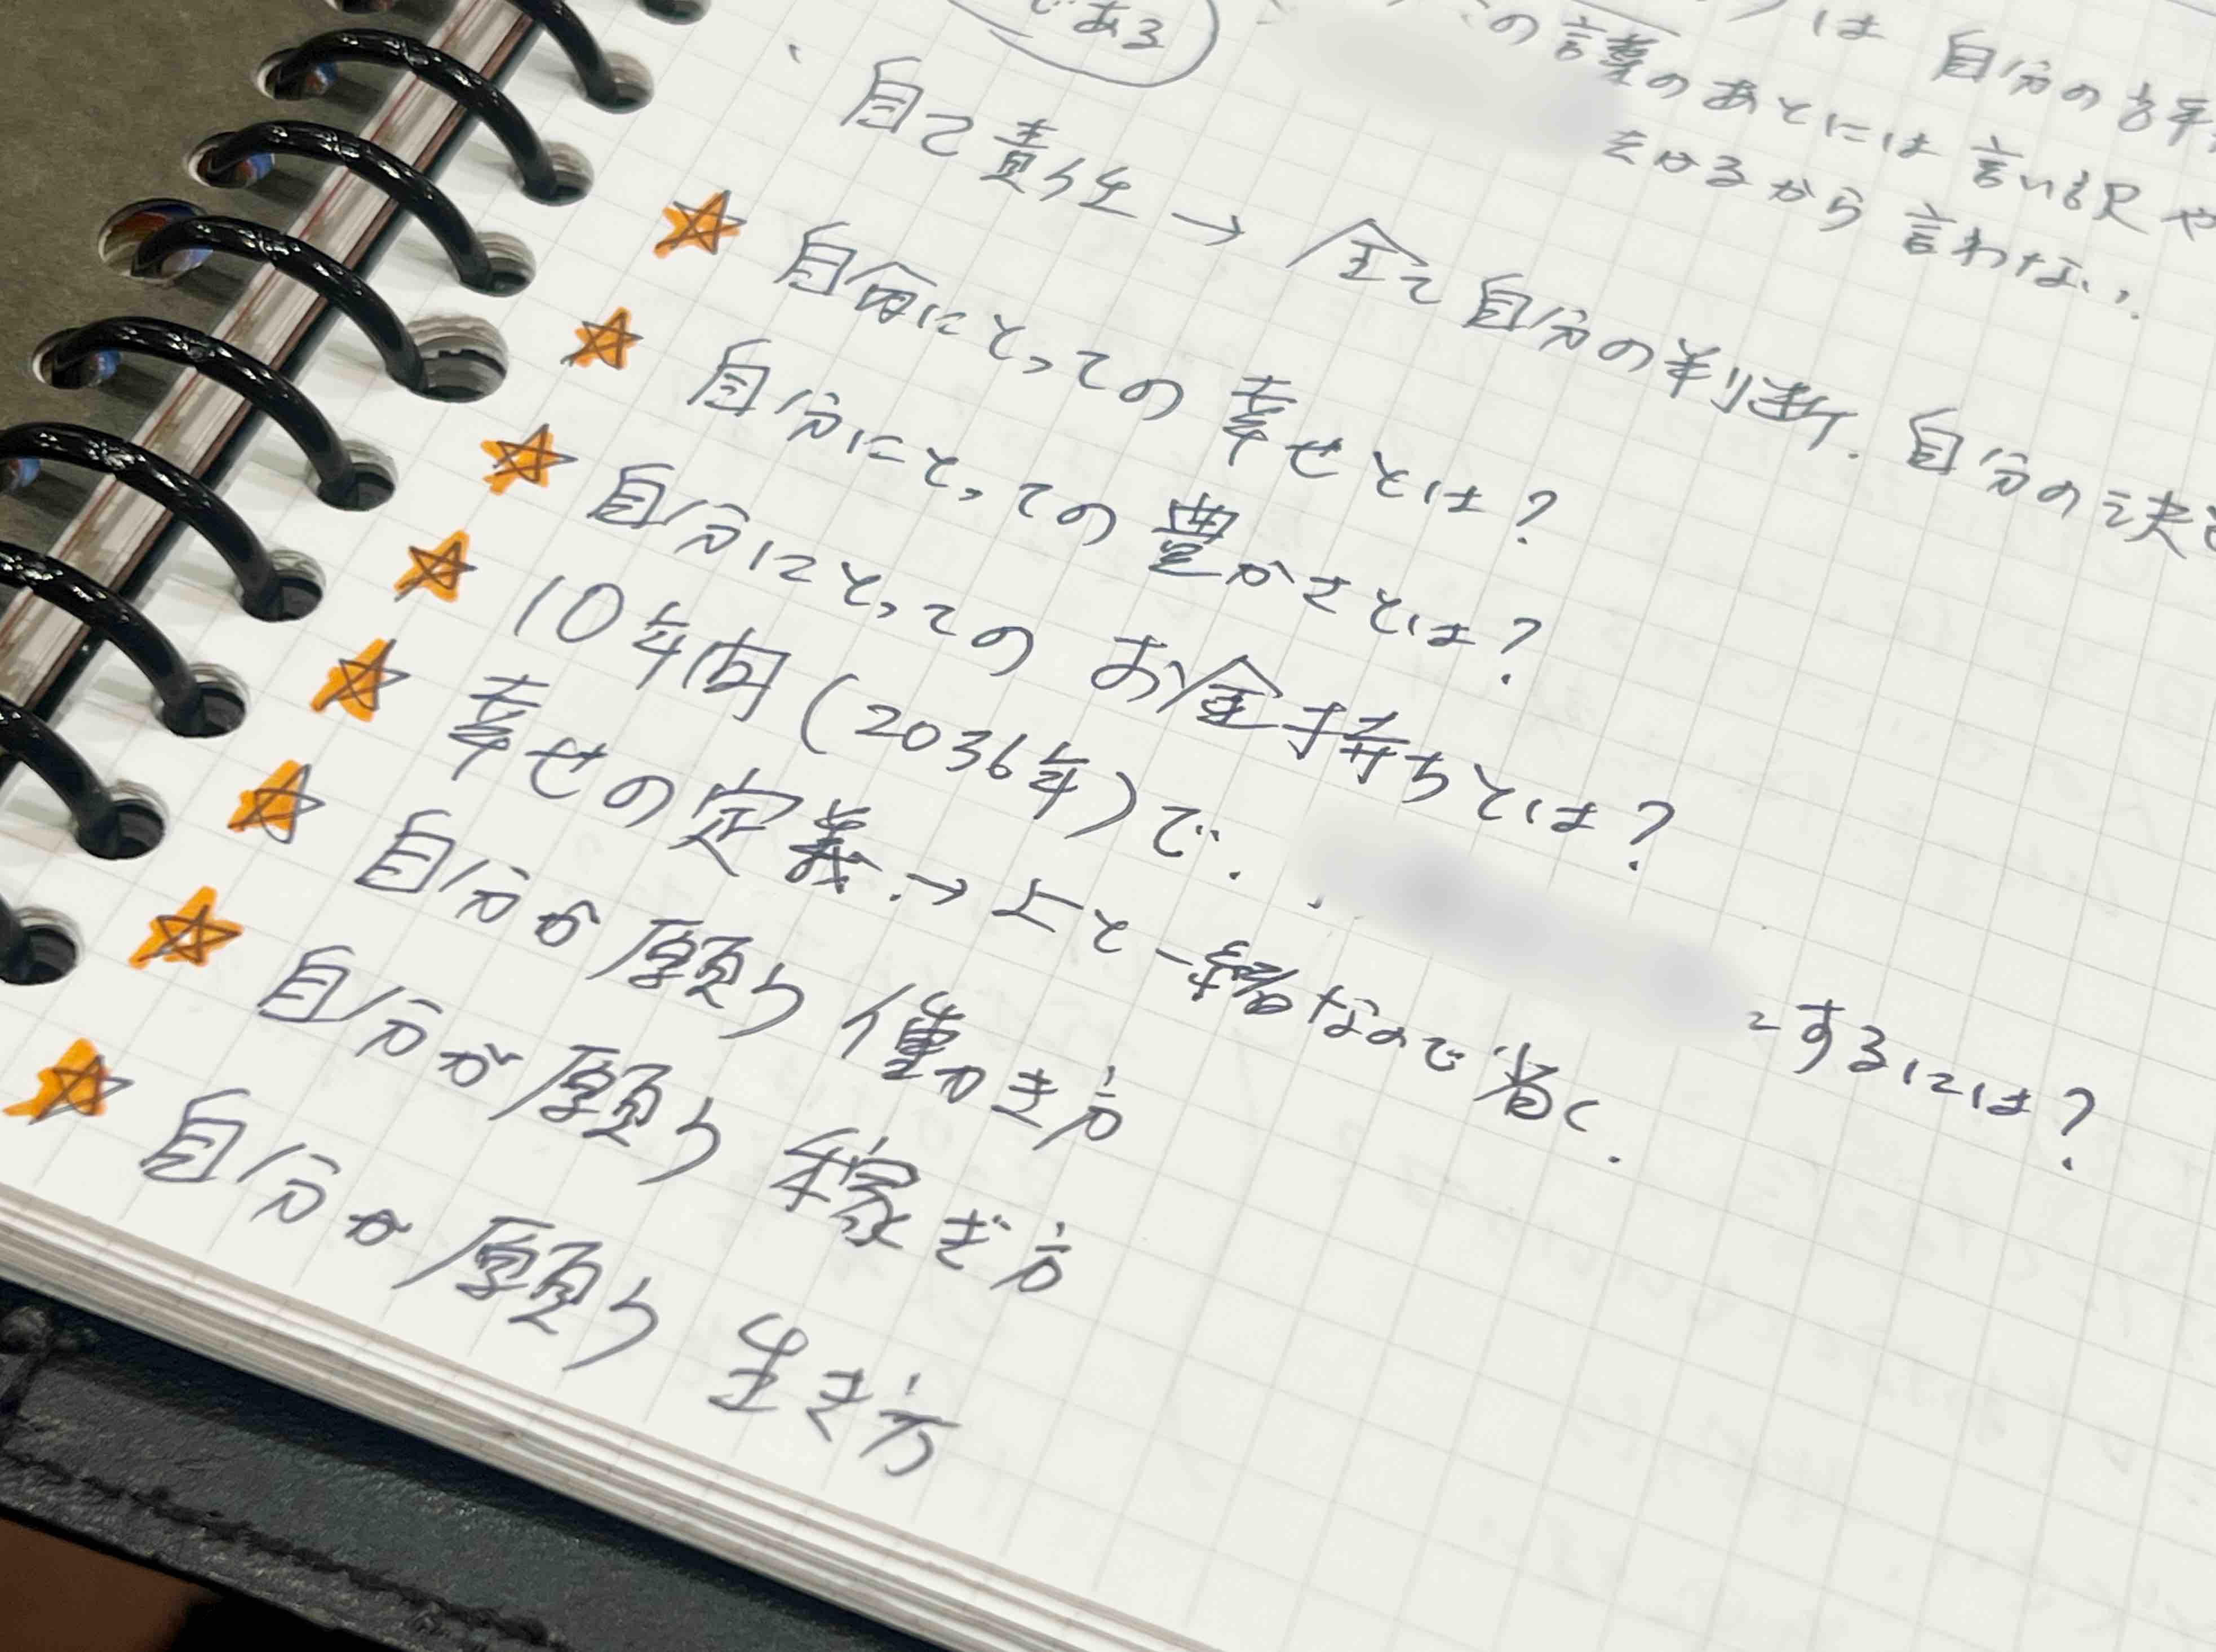 である
は 自分の
この言葉のあとには言い訳や
をはるから言わない。
自己責任 → 全て自分の判断. 自分の決
☆ 自分にとっての幸せとは?
☆ 自分にとっての豊かさとは?
☆ 自分にとってのお金持ちとは?
☆ 10年間(2036年)で. するには?
☆ 幸せの定義. → 上と一緒なので省く.
☆ 自分が願う働き方
☆ 自分が願う稼ぎ方
☆ 自分が願う生き方